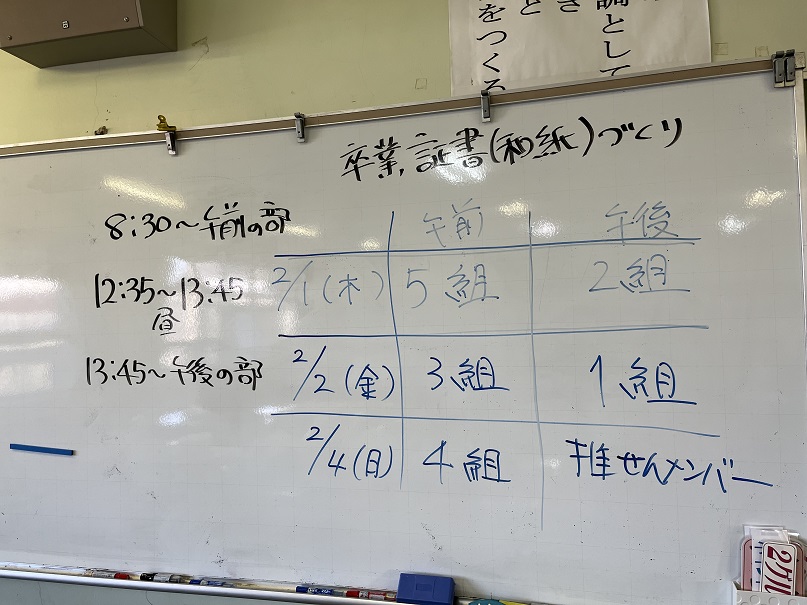 論として
をつくる
卒業証書(和紙)づくり
8:30~午前の部
12:35~13:45
昼
13:45~午後の部
午前 午後
2/1(木) 5組 2組
2/2(金) 3組 1組
2/4(日) 4組 推せんメンバー